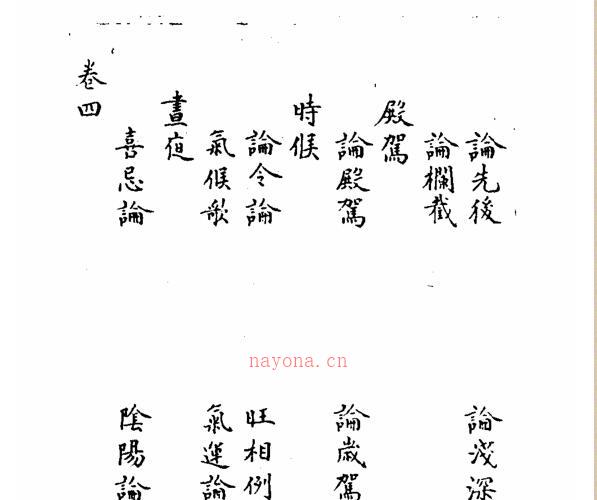 論先後 論淺深
論欄截
殿駕
論殿駕 論歲駕
時候
論令論 旺相例
氣候歌 氣運論
晝夜
喜忌論 陰陽論
卷四
nayona.cn